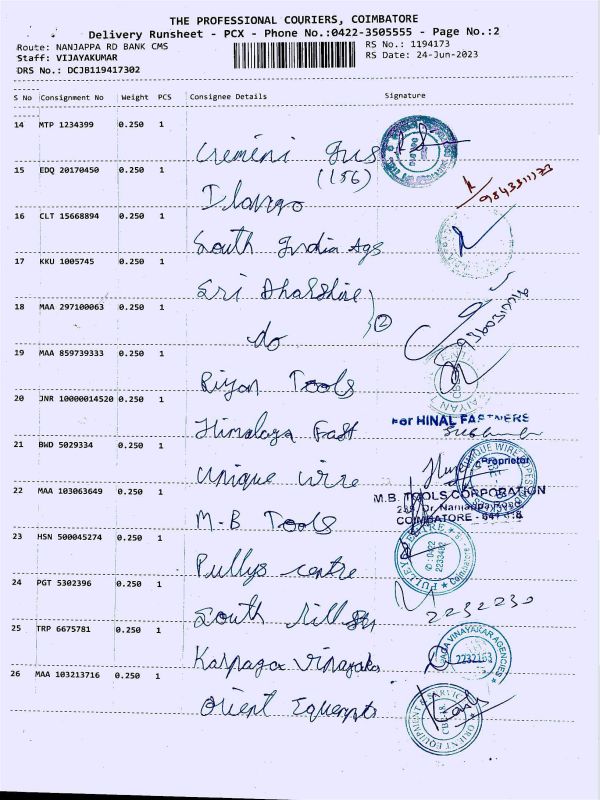 THE PROFESSIONAL COURIERS, COIMBATORE
Delivery Runsheet - PCX - Phone No.:0422-3505555 - Page No.:2
Route: NANJAPPA RD BANK CMS
RS No.: 1194173
Staff: VIJAYAKUMAR
RS Date: 24-Jun-2023
DRS No.: DCJB119417302
S No Consignment No Weight PCS Consignee Details Signature
14 MTP 1234399 0.250 1
Gremini
15 EDQ 20170450 0.250 1
(156)
Ilango
9843311173
16 CLT 15668894 0.250 1
South India Ags
17 KKU 1005745 0.250 1
Sri Dharshine
18 MAA 297100063 0.250 1
do
2
19 MAA 859739333 0.250 1
Riyan Tools
20 JNR 10000014520 0.250 1
Himalaya Fast
For HINAL FASTNERS
21 BWD 5029334 0.250 1
Unique wire
Proprietor
22 MAA 103063649 0.250 1
M-B Tools
M.B. TOOLS CORPORATION
Dr. Nanjappa Road
COIMBATORE - 641
23 HSN 500045274 0.250 1
Pullys centre
0422
2233482
24 PGT 5302396 0.250 1
South
2232230
25 TRP 6675781 0.250 1
Karpaga Vinayaka
VINAYAKAR AGENCIES
2232163
26 MAA 103213716 0.250 1
Orient Equempts
ORIENT EQUIPMENT & SERVICE